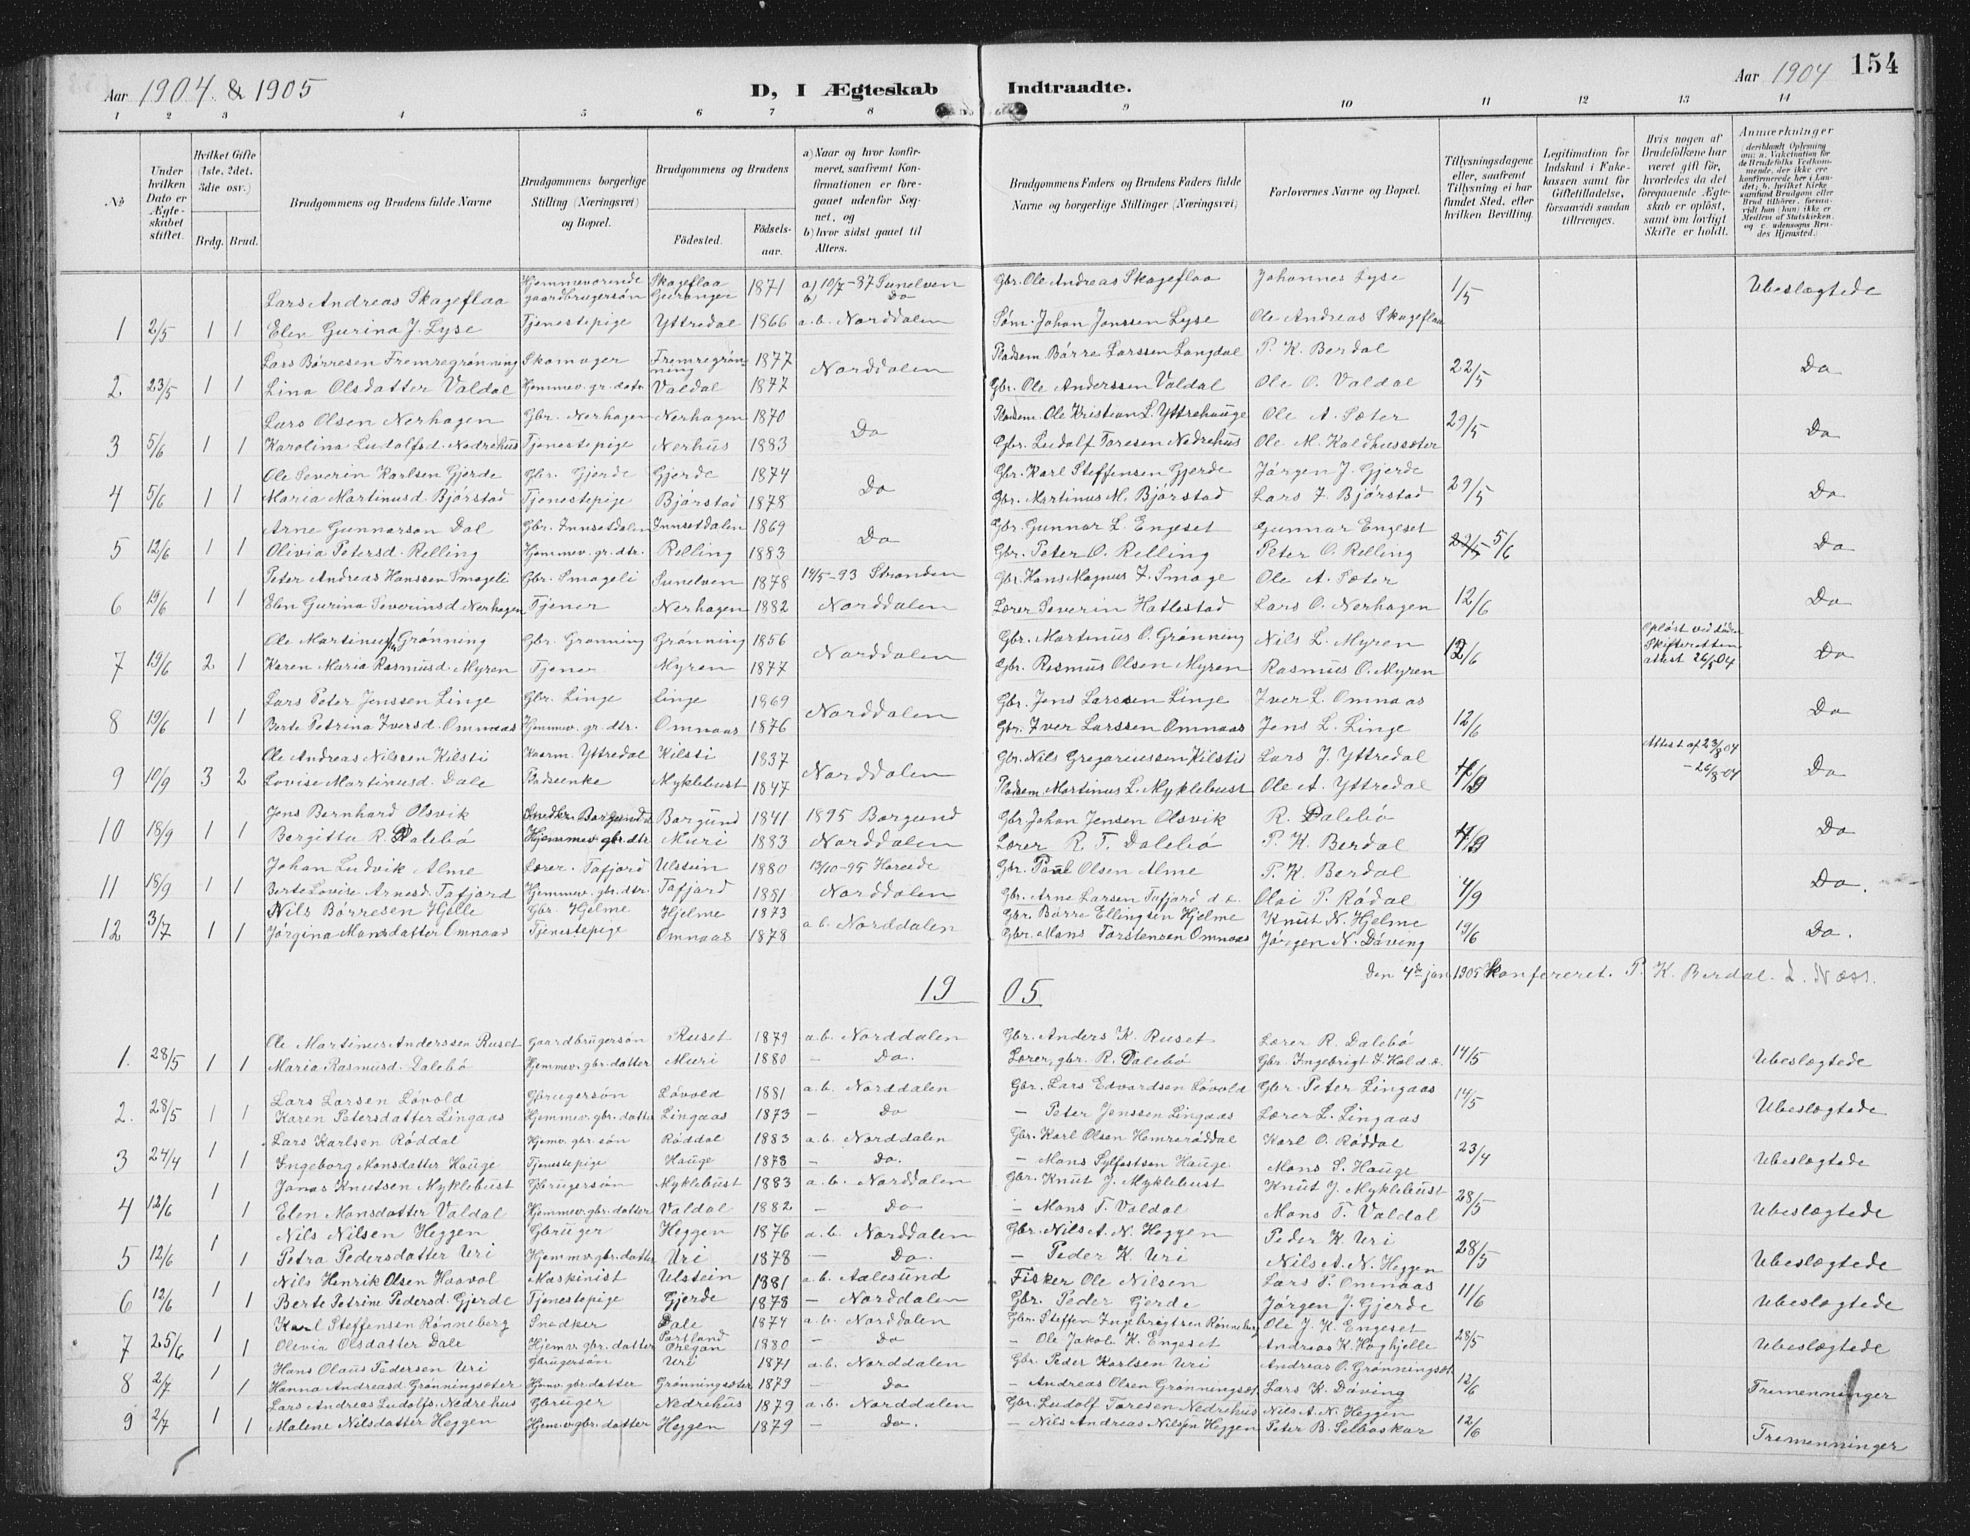 Aar 1904 & 1905 D, I Ægteskab Indtraadte. Aar 1904 154
1 2 3 4 5 6 7 8 9 10 11 12 13 14
No
Under hvilken Dato er Ægteskabet stiftet.
Hvilket Gifte (1ste, 2det. 3die osv.)
Brdg. Brud.
Brudgommens og Brudens fulde Navne
Brudgommens borgerlige Stilling (Næringsvei) og Bopæl.
Brudgommens og Brudens
Fødested. Fødselsaar.
a) Naar og hvor konfirmeret, saafremt Konfirmationen er foregaaet udenfor Sognet, og
b) hvor sidst gaaet til Alters.
Brudgommens Faders og Brudens Faders fulde Navne og borgerlige Stillinger (Næringsvei)
Forlovernes Navne og Bopæl.
Tillysningsdagene eller, saafremt Tillysning ei har fundet Sted. efter hvilken Bevilling
Legitimation for Indskud i Enkekassen samt for Giftetilladelse, forsaavidt saadan tiltrænges.
Hvis nogen af Brudefolkene har været gift før, hvorledes da det foregaaende Ægteskab er opløst, samt om lovligt Skifte er holdt.
Anmærkninger (deriblandt Oplysning om: a. Vakcination for de Brudefolks Vedkommende, der ikke ere konfirmerede her i Landet; b. hvilket Kirkesamfund Brudgom eller Brud tilhører, forsaavidt han (hun) ikke er Medlem af Statskirken. og c. udensogns Brudes Hjemsted.)
Lars Andreas Skageflaa Hjemmeværende gaardbrugersøn Skageflaa Geiranger 1871 a) 10/7-87 Sunelven b) Do Gbr. Ole Andreas Skageflaa Johannes Lyse 1/5 Ubeslægtede
1 2/5 1 1 Elen Gurina J. Lyse Tjenestepige Yttredal 1866 a.b. Norddalen Søm. Johan Jonssen Lyse Ole Andreas Skageflaa
Lars Børresen Fremregrønning Skomager Fremregrønning 1877 Norddalen Pladsem. Børre Larssen Langdal P. K. Berdal 22/5 Do
2 23/5 1 1 Lina Olsdatter Valdal Hjemmev. gr. datr Valdal 1877 Gbr. Ole Anderssen Valdal Ole O. Valdal
Lars Olsen Nerhagen Gbr. Nerhagen Nerhagen 1870 Do Pladsem. Ole Kristian L. Yttrehauge Ole A. Sæter 29/5 Do
3 5/6 1 1 Karolina Ludolfsd. Nedrehus Tjenestepige Nerhus 1883 Gbr. Ludolf Toresen Nedrehus Ole M. Kaldhussæter
Ole Severin Karlsen Gjerde Gbr. Gjerde Gjerde 1874 Do Gbr. Karl Steffensen Gjerde Jørgen J. Gjerde 29/5 Do
4 5/6 1 1 Maria Martinusd. Bjørstad Tjenestepige Bjørstad 1878 Gbr. Martinus M. Bjørstad Lars J. Bjørstad
Arne Gunnarson Dal Gbr. Innsetdalen Innsetdalen 1869 Do Gbr. Gunnar L. Engeset Gunnar Engeset 29/5 5/6 Do
5 12/6 1 1 Olivia Petersd. Relling Hjemmev. gr. dtr. Relling 1883 Gbr. Peter O. Relling Peter O. Relling
Peter Andreas Hanssen Smogeli Gbr. Smogeli Sunelven 1878 14/5-93 Stranden Gbr. Hans Magnus J. Smoge Ole A. Sæter 12/6 Do
6 19/6 1 1 Elen Gurina Severinsd. Nerhagen Tjener Nerhagen 1882 Norddalen Lærer Severin Hatlestad Lars O. Nerhagen
Ole Martinus Grønning Gbr. Grønning Grønning 1856 Norddalen Gbr. Martinus O. Grønning Nils L. Myren 12/6 Opløst ved døden Skifteretten attest 26/5 04 Do
7 19/6 2 1 Karen Maria Rasmusd. Myren Tjener Myren 1877 Gbr. Rasmus Olsen Myren Rasmus O. Myren
Lars Peter Jenssen Linge Gbr. Linge Linge 1869 Norddalen Gbr. Jens Larssen Linge Iver L. Omnaas 12/6 Do
8 19/6 1 1 Berte Petrina Iversd. Omnaas Hjemmev. gr. dtr. Omnaas 1876 Gbr. Iver Larssen Omnaas Jens L. Linge
Ole Andreas Nilssen Kilsti Kaarm. Yttredal Kilsti 1837 Norddalen Gbr. Nils Gregoriussen Kilsti Lars J. Yttredal 4/9 Attest af 23/8 04 - 26/8 04 Do
9 10/9 3 2 Lovise Martinusd. Dale Pladsenke Myklebust 1847 Pladsem. Martinus L. Myklebust Ole A. Yttredal
Jens Bernhard Olsvik Snedker Borgund Borgund 1841 1895 Borgund Gbr. Johan Jensen Olsvik R. Dalebø 4/9 Do
10 18/9 1 1 Bergitta R. Dalebø Hjemmev. gbr. dtr Muri 1883 Norddalen Lærer R. T. Dalebø P. K. Berdal
Johan Ludvik Alme Lærer. Tafjord Ulstein 1880 13/10-95 Hareide Gbr. Paul Olsen Alme P. K. Berdal 4/9 Do.
11 18/9 1 1 Berte Lovise Arnesd. Tafjord Hjemmev. gbr. dtr. Tafjord 1881 Norddalen Gbr. Arne Larsen Tafjord d.e. Olai P. Rødal
Nils Børresen Hjelle Gbr. Hjelme Hjelme 1873 a.b. Norddalen Gbr. Børre Ellingsen Hjelme Knut N. Hjelme 19/6 Do.
12 3/7 1 1 Jørgina Monsdatter Omnaas Tjenestepige Omnaas 1878 Gbr. Mons Torstensen Omnaas Jørgen N. Døving
Den 4de jan 1905 Konfereret. P. K. Berdal. L. Næss.
19 05
Ole Martinus Anderssen Ruset Gaardbrugersøn Ruset 1879 a.b. Norddalen Gbr. Anders K. Ruset Lærer R. Dalebø 14/5 Ubeslægtede
1. 28/5 1 1 Maria Rasmusd. Dalebø Hjemmev. gbr. datter Muri 1880 — Do. Lærer, gbr. R. Dalebø Gbr. Ingebrigt J. Hol d.æ.
Lars Larsen Løvold Gbrugersøn Løvold 1881 a.b. Norddalen Gbr. Lars Edvardsen Løvold Gbr. Peter Lingaas 14/5 Ubeslægtede
2. 28/5 1 1 Karen Petersdatter Lingaas Hjemmev. gbr. datter Lingaas 1873 — Do — Peter Jenssen Lingaas Lærer L. Lingaas
Lars Karlsen Røddal Hjemv. gbr. søn Røddal 1883 a.b. Norddalen Gbr. Karl Olsen Hemrerøddal Karl O. Røddal 23/4 Ubeslægtede
3 24/4 1 1 Ingeborg Monsdatter Hauge Tjenestepige Hauge 1878 — Do. — Mons Sylfestsen Hauge Mons S. Hauge
Jonas Knutsen Myklebust Gbrugersøn Myklebust 1883 a.b. Norddalen Gbr. Knut J. Myklebust Knut J. Myklebust 28/5 Ubeslægtede
4 12/6 1 1 Elen Monsdatter Valdal Hjemmev. gbr. datter Valdal 1882 — Do — Mons T. Valdal Mons T. Valdal
Nils Nilsen Heggen Gbruger Heggen 1876 a.b. Norddalen Gbr. Nils A. N. Heggen Peder K. Uri 28/5 Ubeslægtede
5 12/6 1 1 Petra Pedersdatter Uri Hjemmev. gbr. datter Uri 1878 — Do. — Peder K. Uri Nils A. N. Heggen
Nils Henrik Olsen Haavol Maskinist Ulstein 1881 a.b. Aalesund Fisker Ole Nilsen Lars P. Omnaas 11/6 Ubeslægtede
6 12/6 1 1 Berte Petrine Pedersd. Gjerde Tjenestepige Gjerde 1878 — Norddalen Gbr. Peder Gjerde Jørgen J. Gjerde
Karl Steffensen Rønneberg Snedker Dale 1874 a.b. Norddalen Gbr. Steffen Ingebrigtsen Rønneberg Ole J. K. Engeset 28/5 Ubeslægtede
7 25/6 1 1 Olivia Olsdatter Dale Hjemv. gbr. datter Portland Oregon 1880 — Do — Ole Jakob K. Engeset Andreas K. Høghjelle
Hans Olaus Pedersen Uri Gbrugersøn Uri 1871 a.b. Norddalen Gbr. Peder Karlsen Uri Andreas O. Grønningsæt. 12/6 Tremenninger
8 2/7 1 1 Hanna Andreasd. Grønningsæter Hjemv. gbr. datter Grønningsæter 1879 — Do — Andreas Olsen Grønningsæt. Lars K. Døving
Lars Andreas Ludolfs. Nedrehus Gbruger Nedrehus 1879 a.b. Norddalen Gbr. Ludolf Toresen Nedrehus Nils A. N. Heggen 12/6 Tremenninger
9 2/7 1 1 Malene Nilsdatter Heggen Hjem.v. gbr. datter Heggen 1879 — Do. — Nils Andreas Nilsen Heggen Peter B. Selboskar